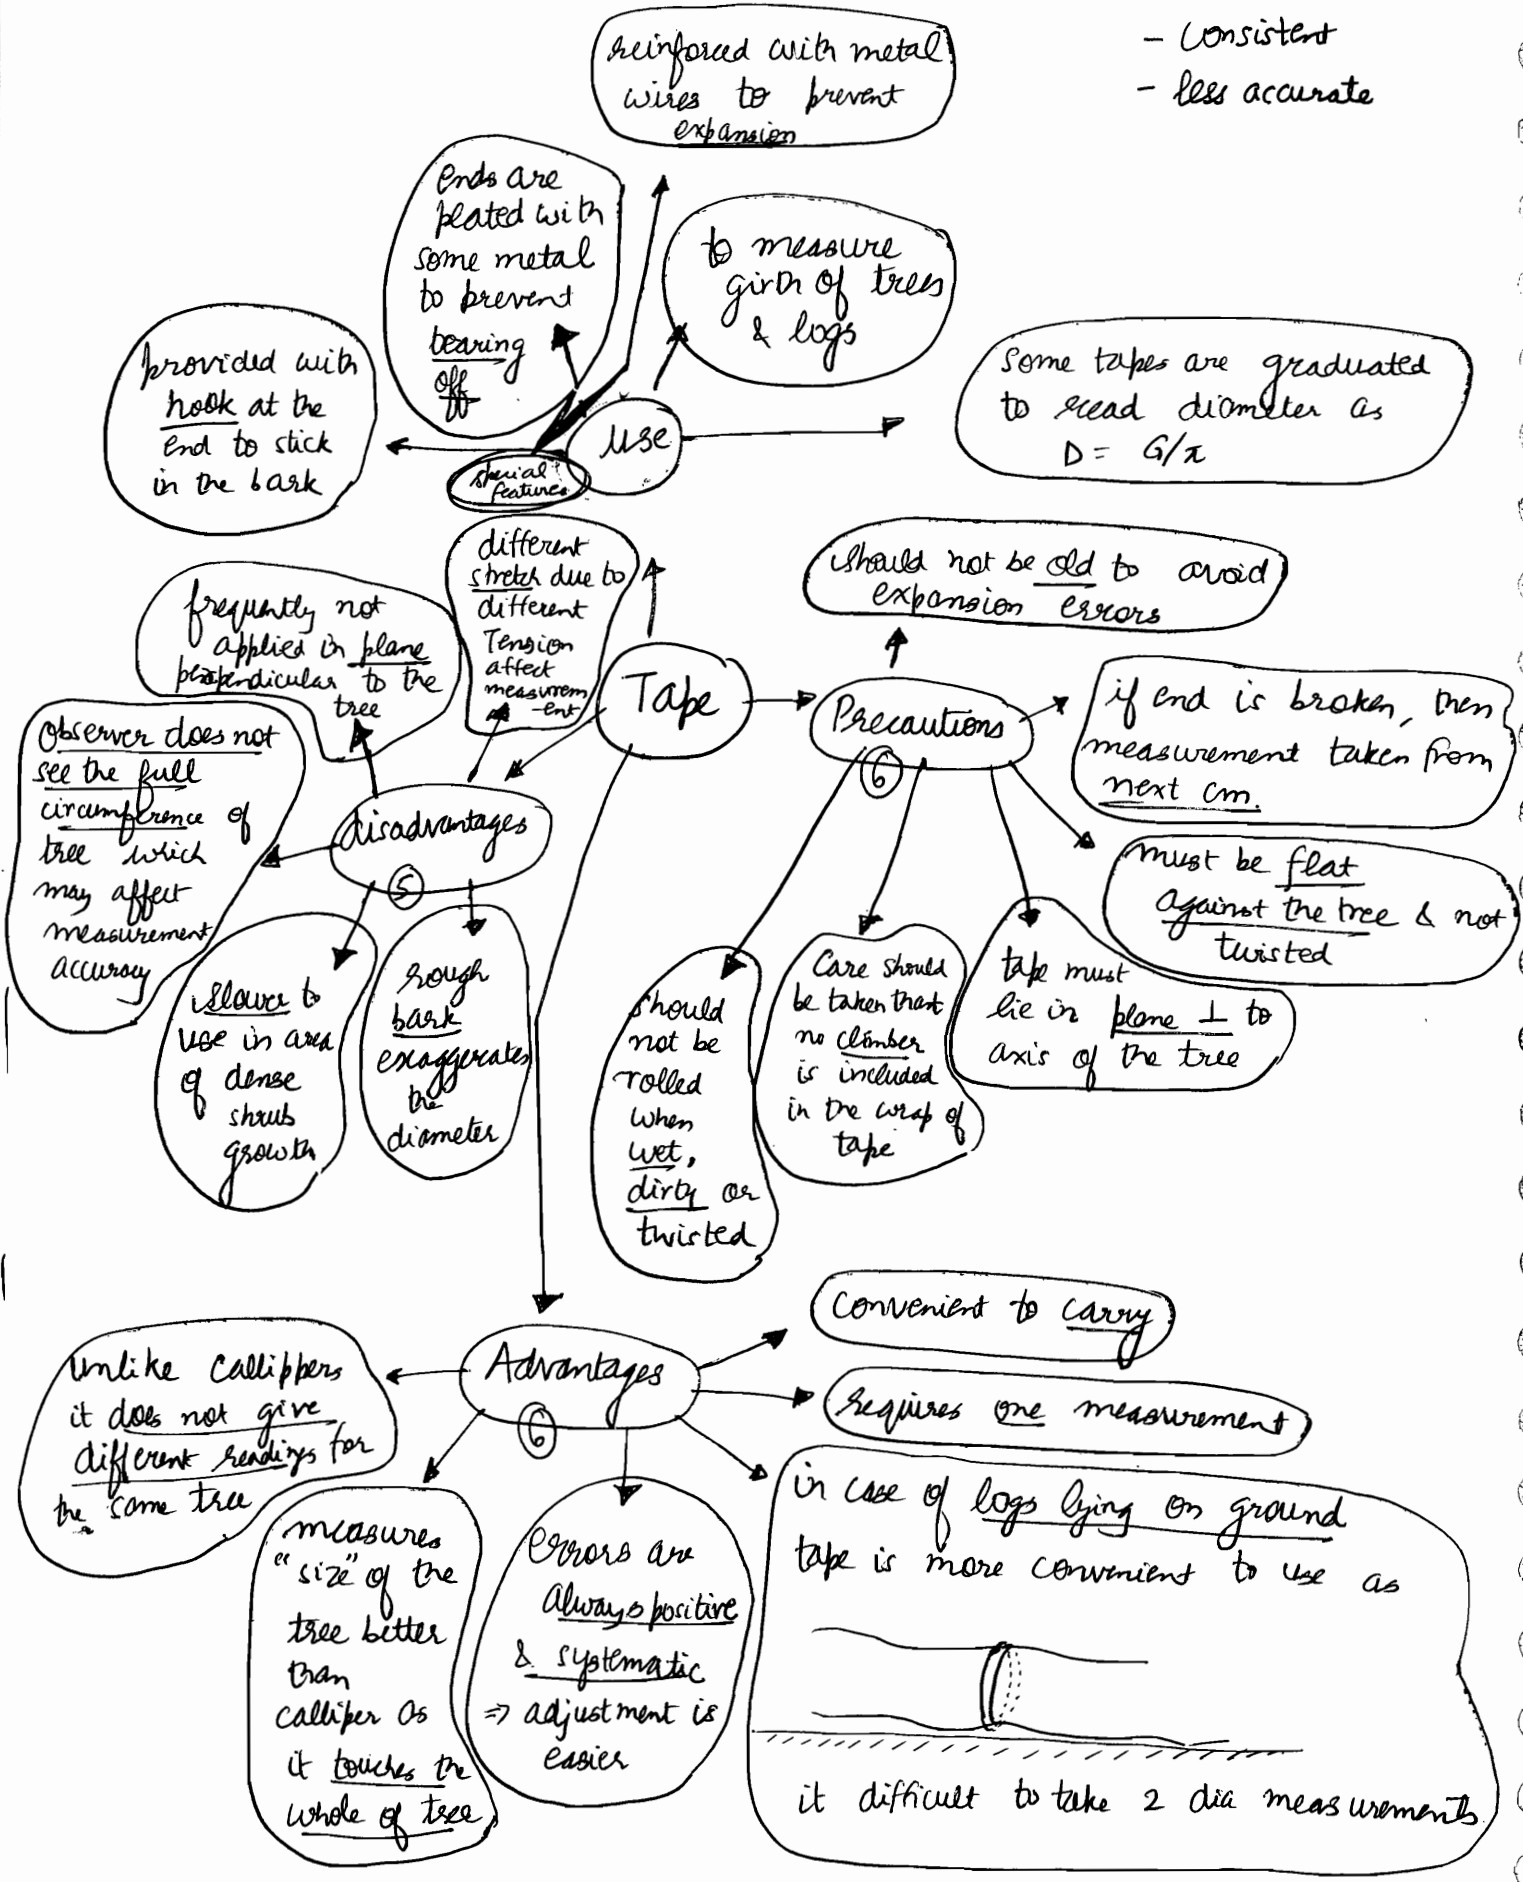 reinforced with metal
wires to prevent
expansion
- consistent
- less accurate
ends are
plated with
some metal
to prevent
tearing
off
to measure
girth of trees
& logs
provided with
hook at the
end to stick
in the bark
special
features
use
some tapes are graduated
to read diameter as
D = G/π
different
stretch due to
different
Tension
affect
measurem
-ent
should not be old to avoid
expansion errors
frequently not
applied in plane
perpendicular to the
tree
Tape
Precautions
6
if end is broken, then
measurement taken from
next cm.
observer does not
see the full
circumference of
tree which
may affect
measurement
accuracy
disadvantages
5
must be flat
against the tree & not
twisted
slower to
use in area
of dense
shrub
growth
rough
bark
exaggerates
the
diameter
should
not be
rolled
when
wet,
dirty or
twisted
Care should
be taken that
no climber
is included
in the wrap of
tape
tape must
lie in plane ⊥ to
axis of the tree
Advantages
6
convenient to carry
requires one measurement
unlike callippers
it does not give
different readings for
the same tree
measures
"size" of the
tree better
than
calliper as
it touches the
whole of tree
errors are
always positive
& systematic
⇒ adjustment is
easier
in case of logs lying on ground
tape is more convenient to use as
it difficult to take 2 dia measurements